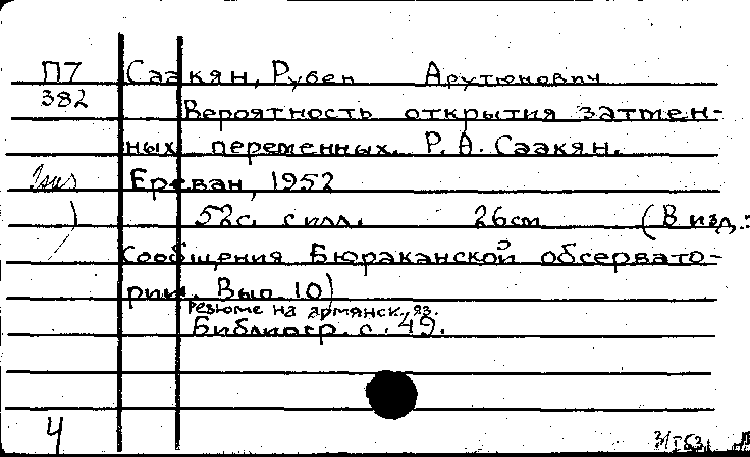 П7 Саакян, Рубен Арутюнович
382 Вероятность открытия затмен-
ных переменных. Р. А. Саакян.
Ереван, 1952
52с. с илл. 26см (В изд.:
Сообщения Бюраканской обсервато-
рии. Вып. 10)
Резюме на армянск. яз.
Библиогр. с. 49.
4